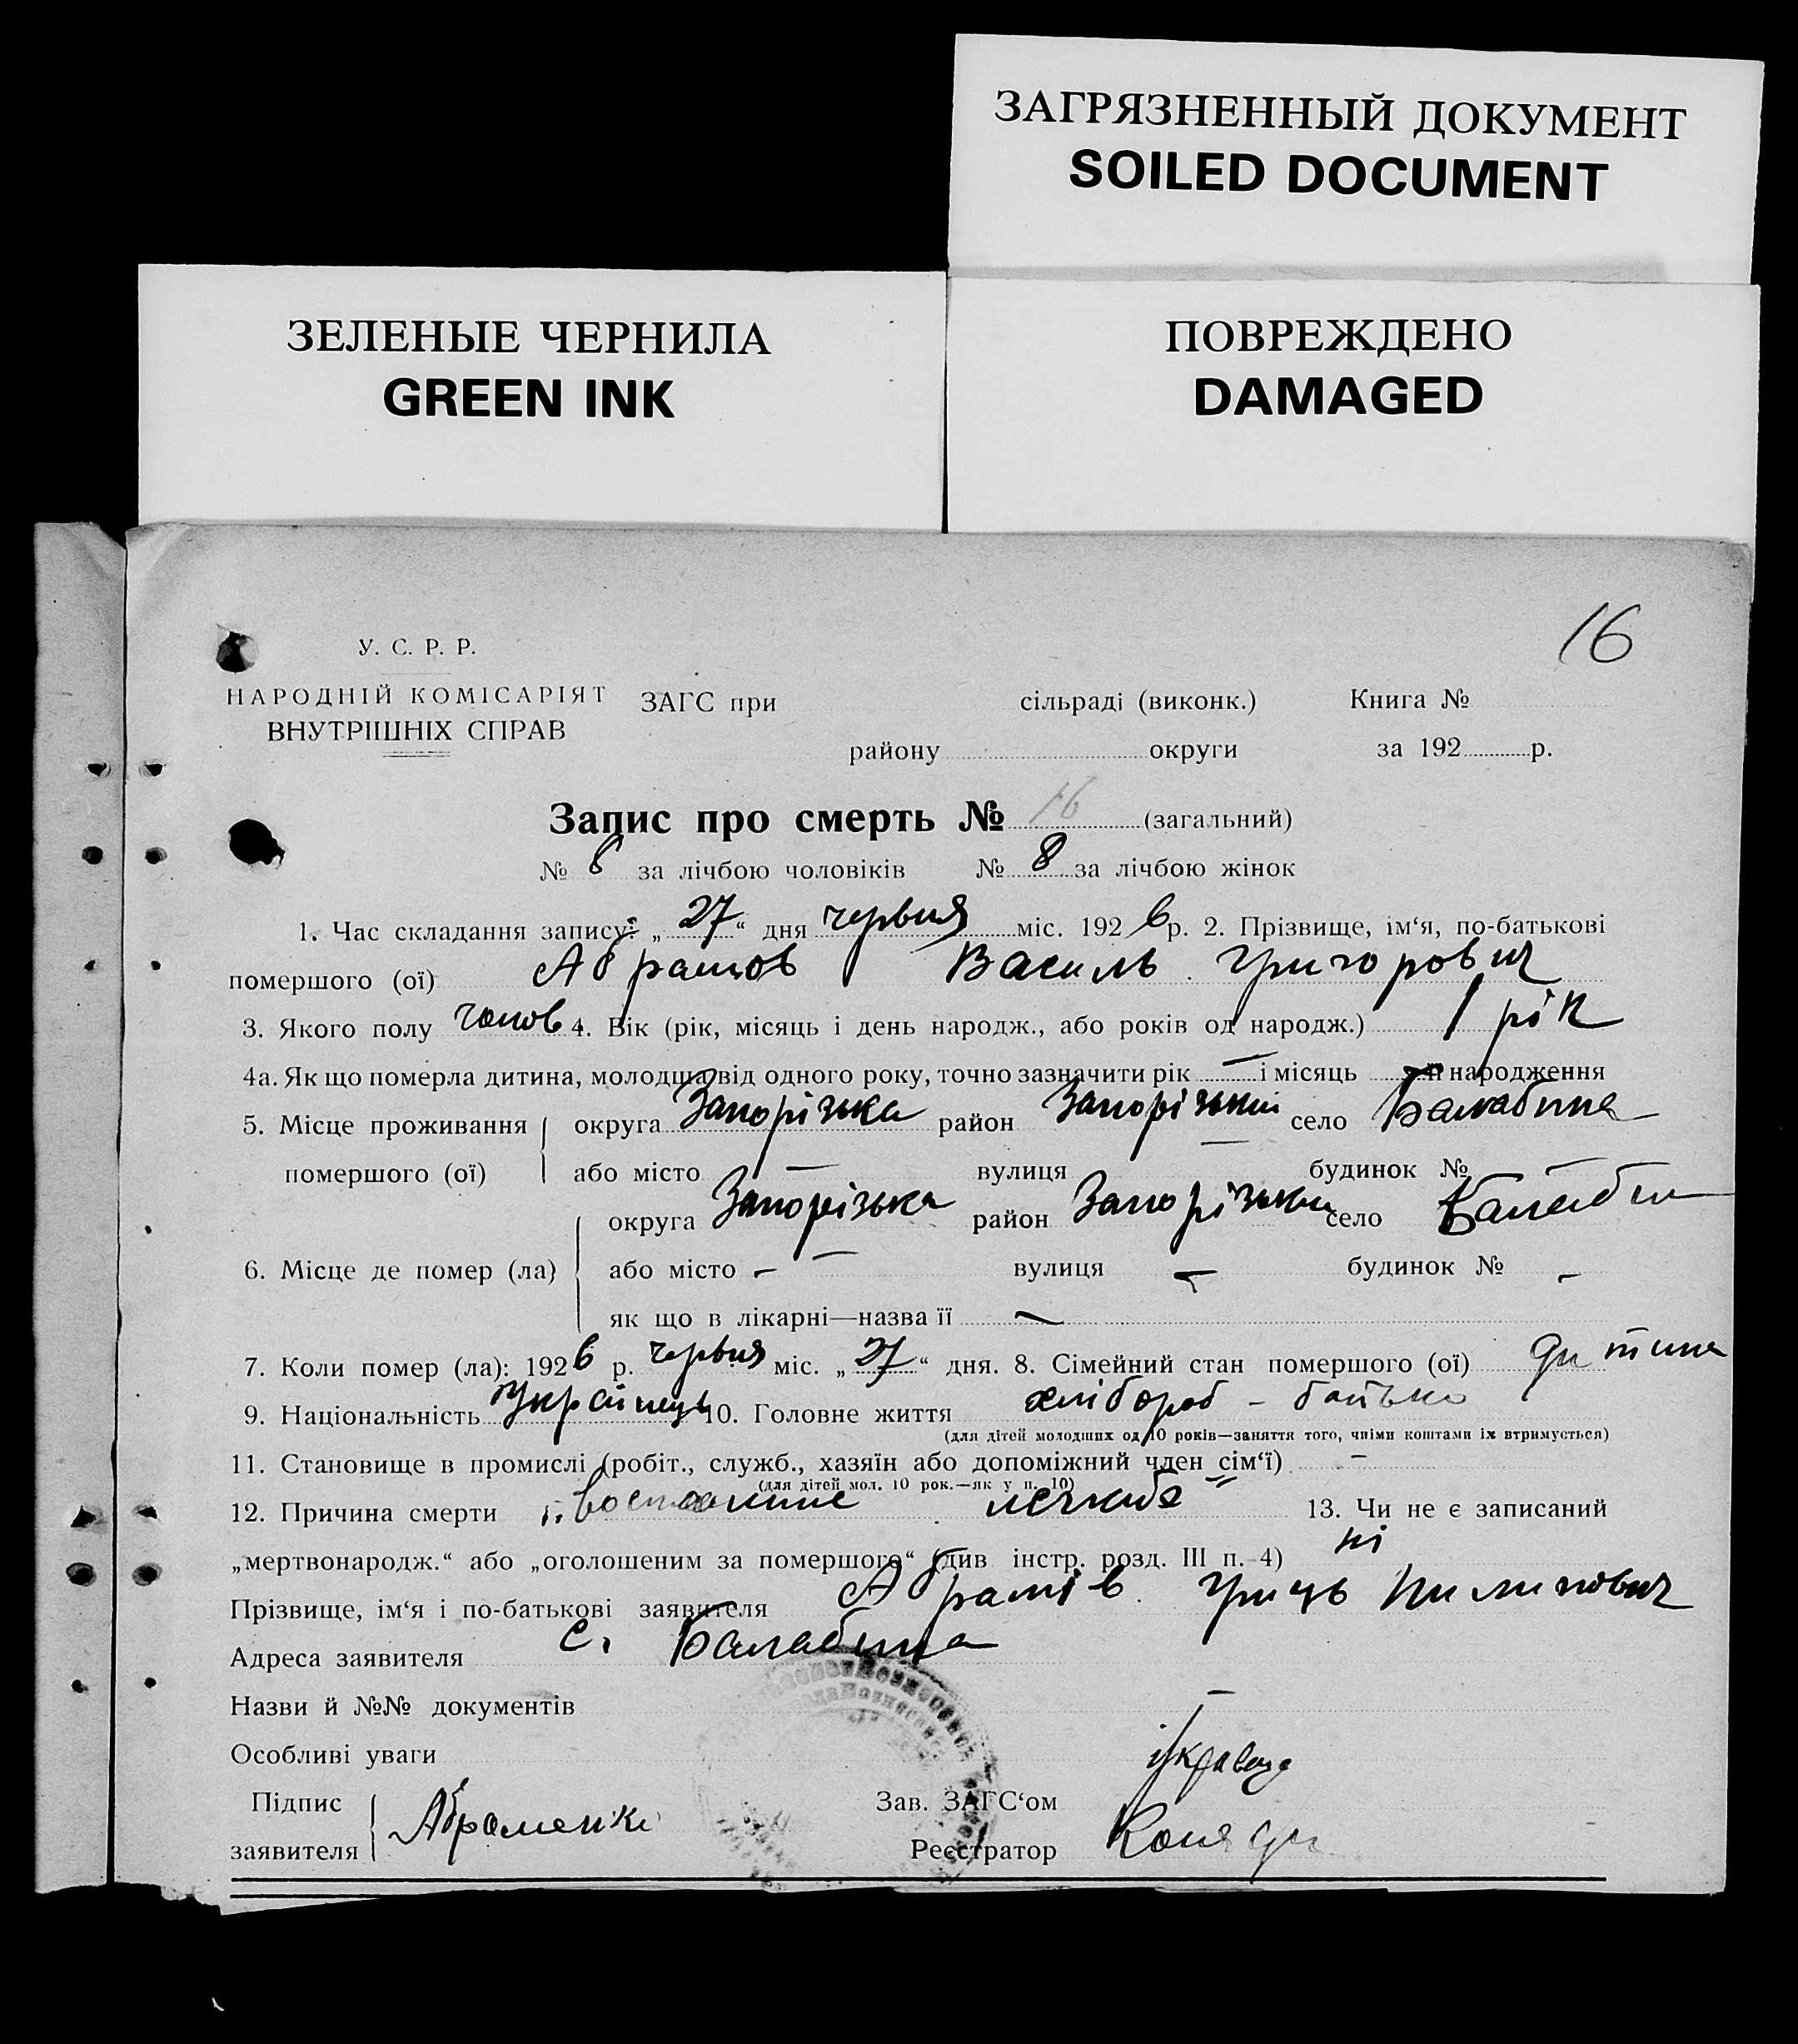 ЗАГРЯЗНЕННЫЙ ДОКУМЕНТ
SOILED DOCUMENT
ЗЕЛЕНЫЕ ЧЕРНИЛА
GREEN INK
ПОВРЕЖДЕНО
DAMAGED
16
У. С. Р. Р.
НАРОДНІЙ КОМІСАРІЯТ
ВНУТРІШНІХ СПРАВ
ЗАГС при сільраді (виконк.) Книга №
району округи за 192 р.
Запис про смерть № 16 (загальний)
№ 8 за лічбою чоловіків № 8 за лічбою жінок
1. Час складання запису: „27“ дня червня міс. 1926 р. 2. Прізвище, ім‘я, по-батькові
помершого (ої) Абрамов Василь Григорович
3. Якого полу чолов 4. Вік (рік, місяць і день народж., або років од народж.) 1 рік
4а. Як що померла дитина, молодша від одного року, точно зазначити рік — і місяць — її народження
5. Місце проживання помершого (ої)
округа Запорізька район Запорізький село Балабина
або місто — вулиця — будинок № —
6. Місце де помер (ла)
округа Запорізька район Запорізьки село Балабин
або місто — вулиця — будинок № —
як що в лікарні—назва її —
7. Коли помер (ла): 1926 р. червня міс. „27“ дня. 8. Сімейний стан помершого (ої) дитина
9. Національність Українець 10. Головне життя хлібороб - батько
(для дітей молодших од 10 років—заняття того, чиїми коштами їх втримується)
11. Становище в промислі (робіт., служб., хазяїн або допоміжний член сім‘ї) —
(для дітей мол. 10 рок.—як у п. 10)
12. Причина смерти 13. Чи не є записаний
„мертвонародж.“ або „оголошеним за помершого“ (див інстр. розд. III п. 4) ні
Прізвище, ім‘я і по-батькові заявителя Абрамів Гриць Пилипович
Адреса заявителя с. Балабина
Назви й №№ документів —
Особливі уваги
Підпис заявителя Абраменко
Зав. ЗАГС‘ом
Реєстратор